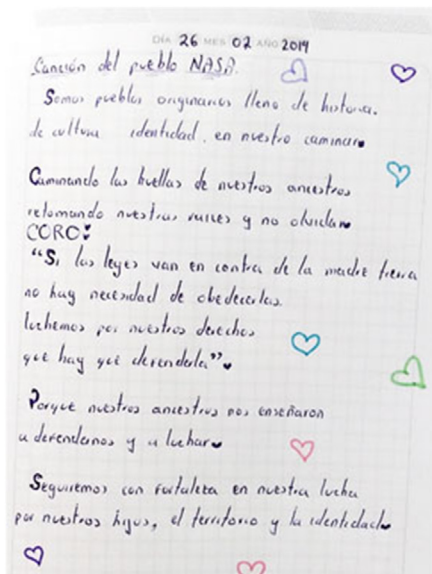 DÍA 26 MES 02 AÑO 2019
Canción del pueblo NASA.
Somos pueblos originarios lleno de historia.
de cultura identidad. en nuestro caminar
Caminando las huellas de nuestros ancestros
retomando nuestras raices y no olvidar
CORO:
"Si las leyes van en contra de la madre tierra
no hay necesidad de obedecerlas.
luchemos por nuestros derechos
que hay que derenderla"
Porque nuestros ancestros nos enseñaron
a derendernos y a luchar
Seguiremos con fortaleza en nuestra lucha
por nuestros hijos, el territorio y la identidad